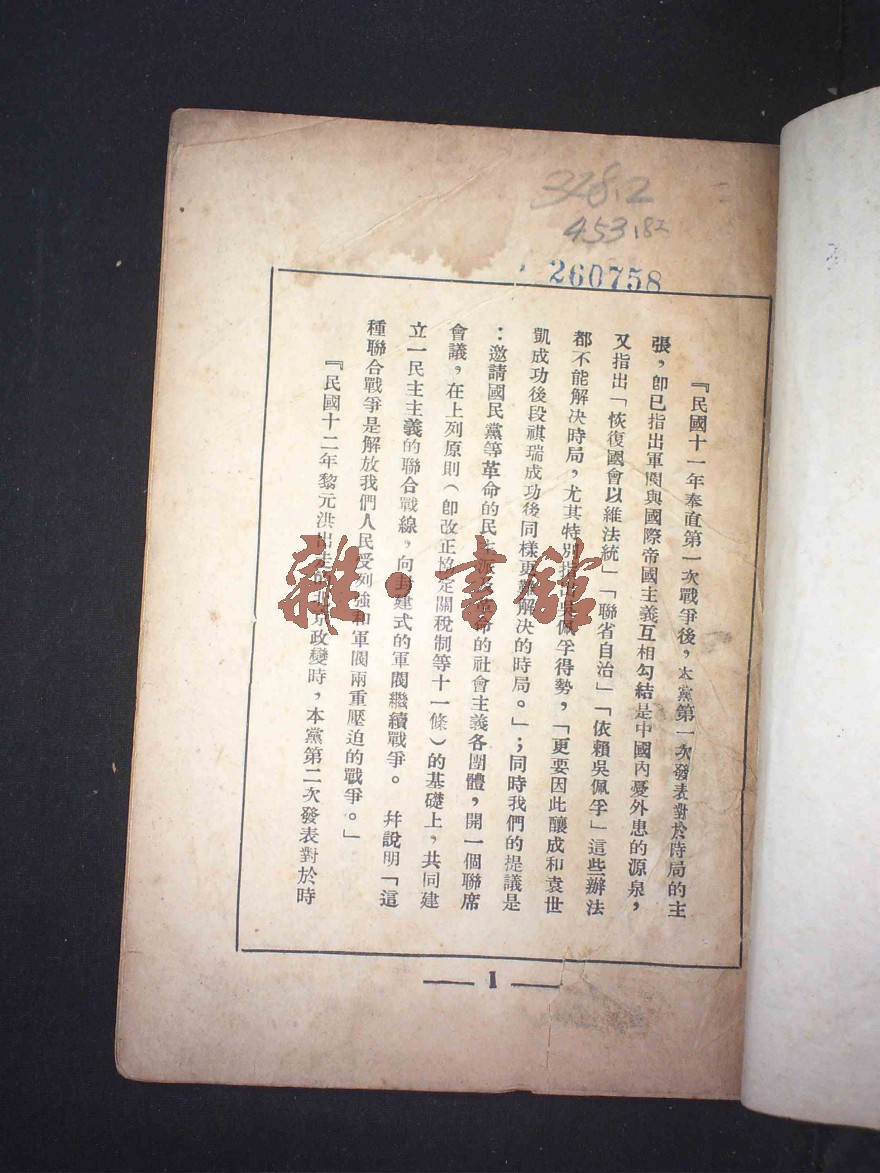 328.2
453.182
260758
『民國十一年奉直第一次戰爭後，本黨第一次發表對於時局的主
張，卽已指出軍閥與國際帝國主義互相勾結是中國內憂外患的源泉，
又指出「恢復國會以維法統」「聯省自治」「依賴吳佩孚」這些辦法
都不能解決時局，尤其特別指出吳佩孚得勢，「更要因此釀成和袁世
凱成功後段祺瑞成功後同樣更難解決的時局。」；同時我們的提議是
：邀請國民黨等革命的民主派及革命的社會主義各團體，開一個聯席
會議，在上列原則（卽改正協定關稅制等十一條）的基礎上，共同建
立一民主主義的聯合戰線，向封建式的軍閥繼續戰爭。　幷說明「這
種聯合戰爭是解放我們人民受列強和軍閥兩重壓迫的戰爭。」
『民國十二年黎元洪出走的北京政變時，本黨第二次發表對於時
1
雜·書館